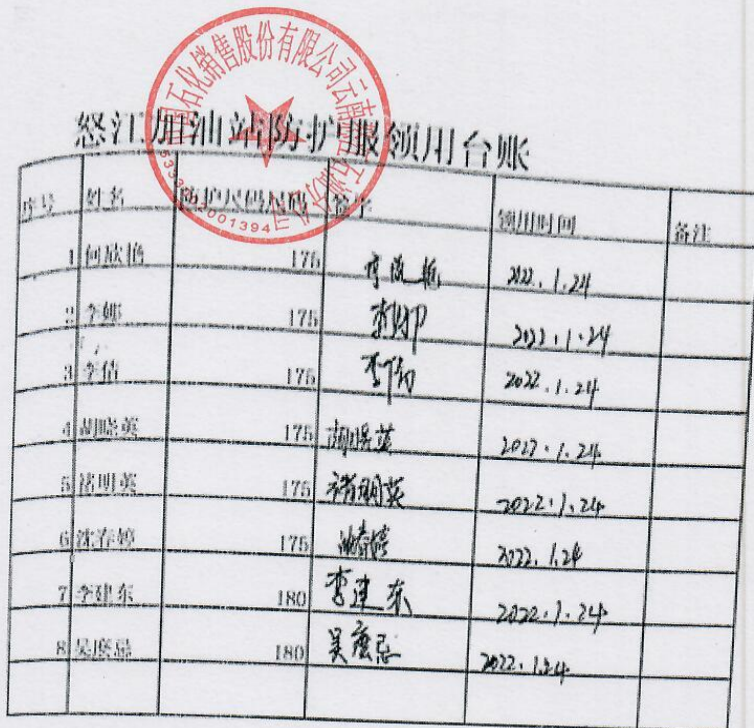 中国石化销售股份有限公司云南怒江石油分公司
怒江加油站防护服领用台账
序号 姓名 防护尺码尺码 签字 领用时间 备注
1 何欣艳 175 2022.1.24
2 李娜 175 李娜 2022.1.24
3 李倩 175 李倩 2022.1.24
4 胡晓英 175 胡晓英 2022.1.24
5 褚明英 175 褚明英 2022.1.24
6 沈春婷 175 沈春婷 2022.1.24
7 李建东 180 李建东 2022.1.24
8 吴 180 吴 2022.1.24